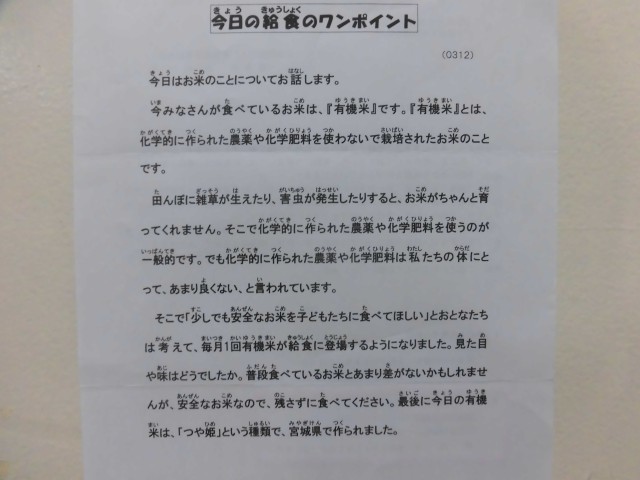 今日の給食のワンポイント
(0312)
今日はお米のことについてお話します。
今みなさんが食べているお米は、『有機米』です。『有機米』とは、
化学的に作られた農薬や化学肥料を使わないで栽培されたお米のこと
です。
田んぼに雑草が生えたり、害虫が発生したりすると、お米がちゃんと育
ってくれません。そこで化学的に作られた農薬や化学肥料を使うのが
一般的です。でも化学的に作られた農薬や化学肥料は私たちの体にと
って、あまり良くない、と言われています。
そこで「少しでも安全なお米を子どもたちに食べてほしい」とおとなたち
は考えて、毎月1回有機米が給食に登場するようになりました。見た目
や味はどうでしたか。普段食べているお米とあまり差がないかもしれませ
んが、安全なお米なので、残さずに食べてください。最後に今日の有機
米は、「つや姫」という種類で、宮城県で作られました。